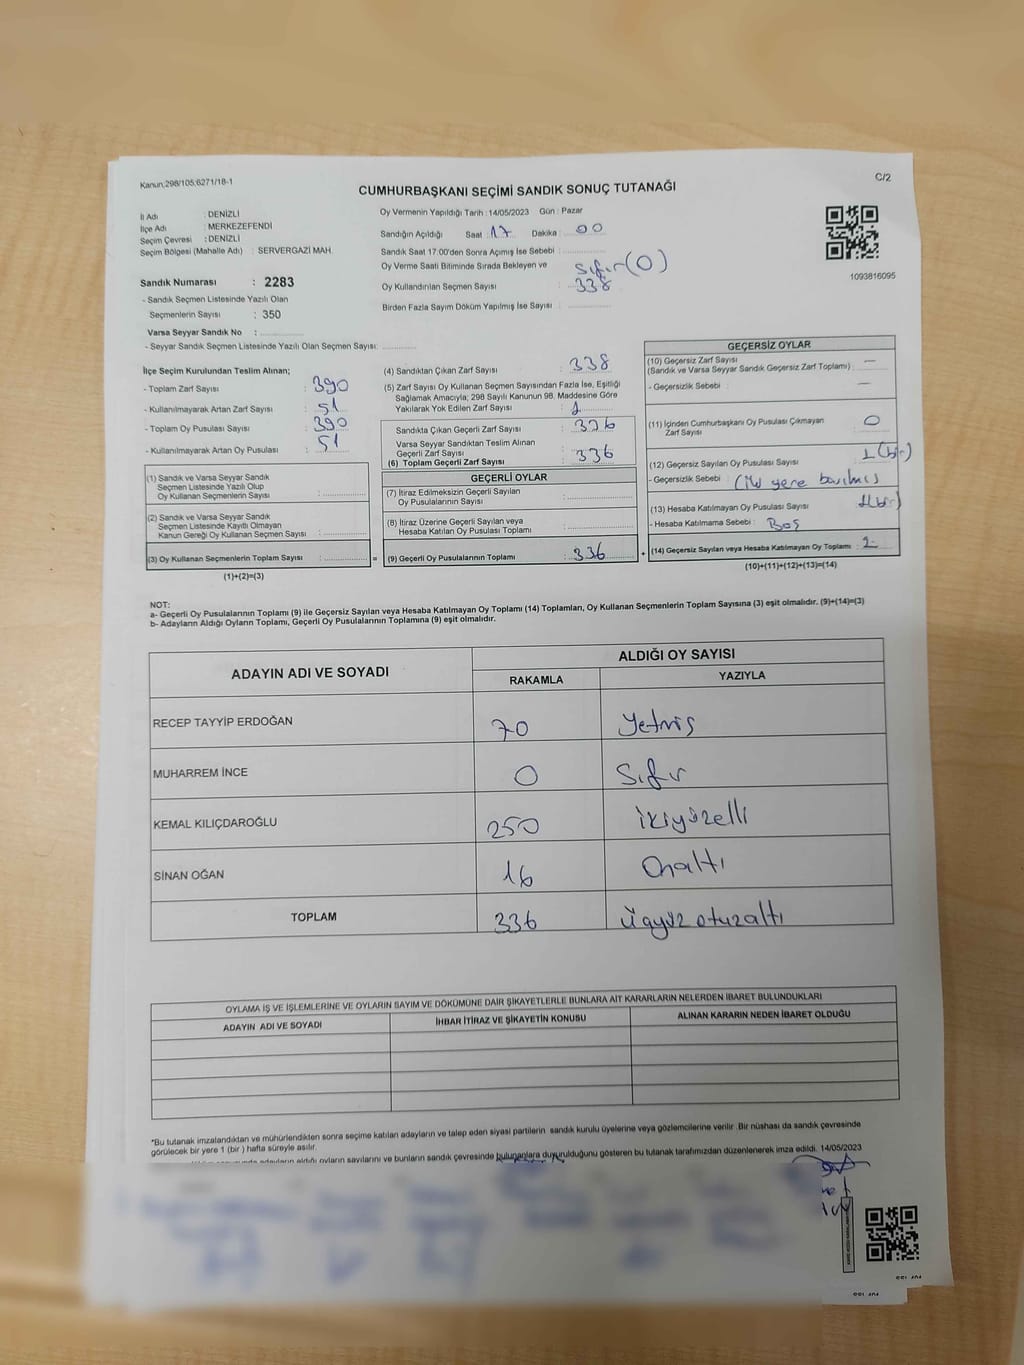 Kanun:298/105;6271/18-1
C/2
CUMHURBAŞKANI SEÇİMİ SANDIK SONUÇ TUTANAĞI
İl Adı : DENİZLİ
İlçe Adı : MERKEZEFENDİ
Seçim Çevresi : DENİZLİ
Seçim Bölgesi (Mahalle Adı) : SERVERGAZİ MAH.
Sandık Numarası : 2283
- Sandık Seçmen Listesinde Yazılı Olan
Seçmenlerin Sayısı : 350
Varsa Seyyar Sandık No :
- Seyyar Sandık Seçmen Listesinde Yazılı Olan Seçmen Sayısı:
Oy Vermenin Yapıldığı Tarih : 14/05/2023 Gün : Pazar
Sandığın Açıldığı Saat : 17 Dakika : 00
Sandık Saat 17:00'den Sonra Açımış İse Sebebi :
Oy Verme Saati Bitiminde Sırada Bekleyen ve Sıfır (0)
Oy Kullandırılan Seçmen Sayısı : 338
Birden Fazla Sayım Döküm Yapılmış İse Sayısı :
1093816095
İlçe Seçim Kurulundan Teslim Alınan;
- Toplam Zarf Sayısı : 390
- Kullanılmayarak Artan Zarf Sayısı : 51
- Toplam Oy Pusulası Sayısı : 390
- Kullanılmayarak Artan Oy Pusulası : 51
(1) Sandık ve Varsa Seyyar Sandık
Seçmen Listesinde Yazılı Olup
Oy Kullanan Seçmenlerin Sayısı :
(2) Sandık ve Varsa Seyyar Sandık
Seçmen Listesinde Kayıtlı Olmayan
Kanun Gereği Oy Kullanan Seçmen Sayısı :
(3) Oy Kullanan Seçmenlerin Toplam Sayısı : =
(1)+(2)=(3)
(4) Sandıktan Çıkan Zarf Sayısı : 338
(5) Zarf Sayısı Oy Kullanan Seçmen Sayısından Fazla İse, Eşitliği
Sağlamak Amacıyla; 298 Sayılı Kanunun 98. Maddesine Göre
Yakılarak Yok Edilen Zarf Sayısı :
Sandıkta Çıkan Geçerli Zarf Sayısı : 336
Varsa Seyyar Sandıktan Teslim Alınan
Geçerli Zarf Sayısı
(6) Toplam Geçerli Zarf Sayısı : 336
GEÇERLİ OYLAR
(7) İtiraz Edilmeksizin Geçerli Sayılan
Oy Pusulalarının Sayısı :
(8) İtiraz Üzerine Geçerli Sayılan veya
Hesaba Katılan Oy Pusulası Toplamı :
(9) Geçerli Oy Pusulalarının Toplamı : 336 +
GEÇERSİZ OYLAR
(10) Geçersiz Zarf Sayısı
(Sandık ve Varsa Seyyar Sandık Geçersiz Zarf Toplamı) : —
- Geçersizlik Sebebi : —
(11) İçinden Cumhurbaşkanı Oy Pusulası Çıkmayan
Zarf Sayısı : 0
(12) Geçersiz Sayılan Oy Pusulası Sayısı : 1 (bir)
- Geçersizlik Sebebi : (iki yere basılmış)
(13) Hesaba Katılmayan Oy Pusulası Sayısı : 1(bir)
- Hesaba Katılmama Sebebi : Boş
(14) Geçersiz Sayılan veya Hesaba Katılmayan Oy Toplamı : 2
(10)+(11)+(12)+(13)=(14)
NOT:
a- Geçerli Oy Pusulalarının Toplamı (9) ile Geçersiz Sayılan veya Hesaba Katılmayan Oy Toplamı (14) Toplamları, Oy Kullanan Seçmenlerin Toplam Sayısına (3) eşit olmalıdır. (9)+(14)=(3)
b- Adayların Aldığı Oyların Toplamı, Geçerli Oy Pusulalarının Toplamına (9) eşit olmalıdır.
ADAYIN ADI VE SOYADI ALDIĞI OY SAYISI
RAKAMLA YAZIYLA
RECEP TAYYİP ERDOĞAN 70 Yetmiş
MUHARREM İNCE 0 Sıfır
KEMAL KILIÇDAROĞLU 250 ikiyüzelli
SİNAN OĞAN 16 Onaltı
TOPLAM 336 üçyüz otuzaltı
OYLAMA İŞ VE İŞLEMLERİNE VE OYLARIN SAYIM VE DÖKÜMÜNE DAİR ŞİKAYETLERLE BUNLARA AİT KARARLARIN NELERDEN İBARET BULUNDUKLARI
ADAYIN ADI VE SOYADI İHBAR İTİRAZ VE ŞİKAYETİN KONUSU ALINAN KARARIN NEDEN İBARET OLDUĞU
*Bu tutanak imzalandıktan ve mühürlendikten sonra seçime katılan adayların ve talep eden siyasi partilerin sandık kurulu üyelerine veya gözlemcilerine verilir. Bir nüshası da sandık çevresinde
görülecek bir yere 1 (bir ) hafta süreyle asılır.
adayların aldığı oyların sayılarını ve bunların sandık çevresinde bulunanlara duyurulduğunu gösteren bu tutanak tarafımızdan düzenlenerek imza edildi. 14/05/2023